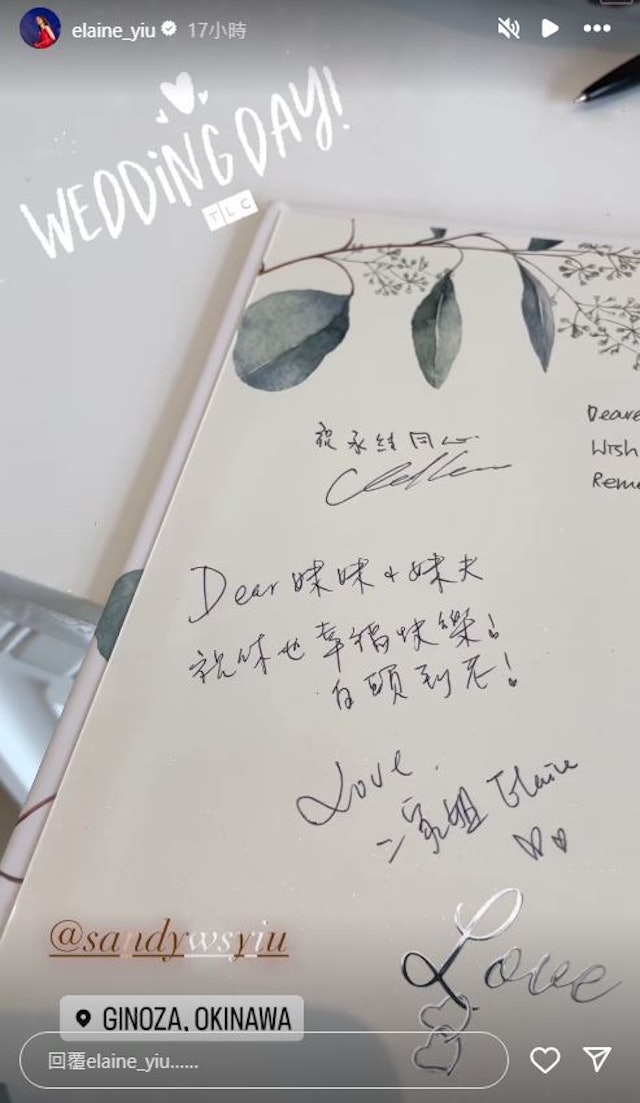 elaine_yiu 17小時
WEDDING DAY!
TLC
祝永結同心
Deare
Wish
Reme
Dear 妹妹 & 妹夫
祝你地幸福快樂!
白頭到老!
Love.
二家姐 Elaine
@sandywsyiu
Love
GINOZA, OKINAWA
回覆elaine_yiu......